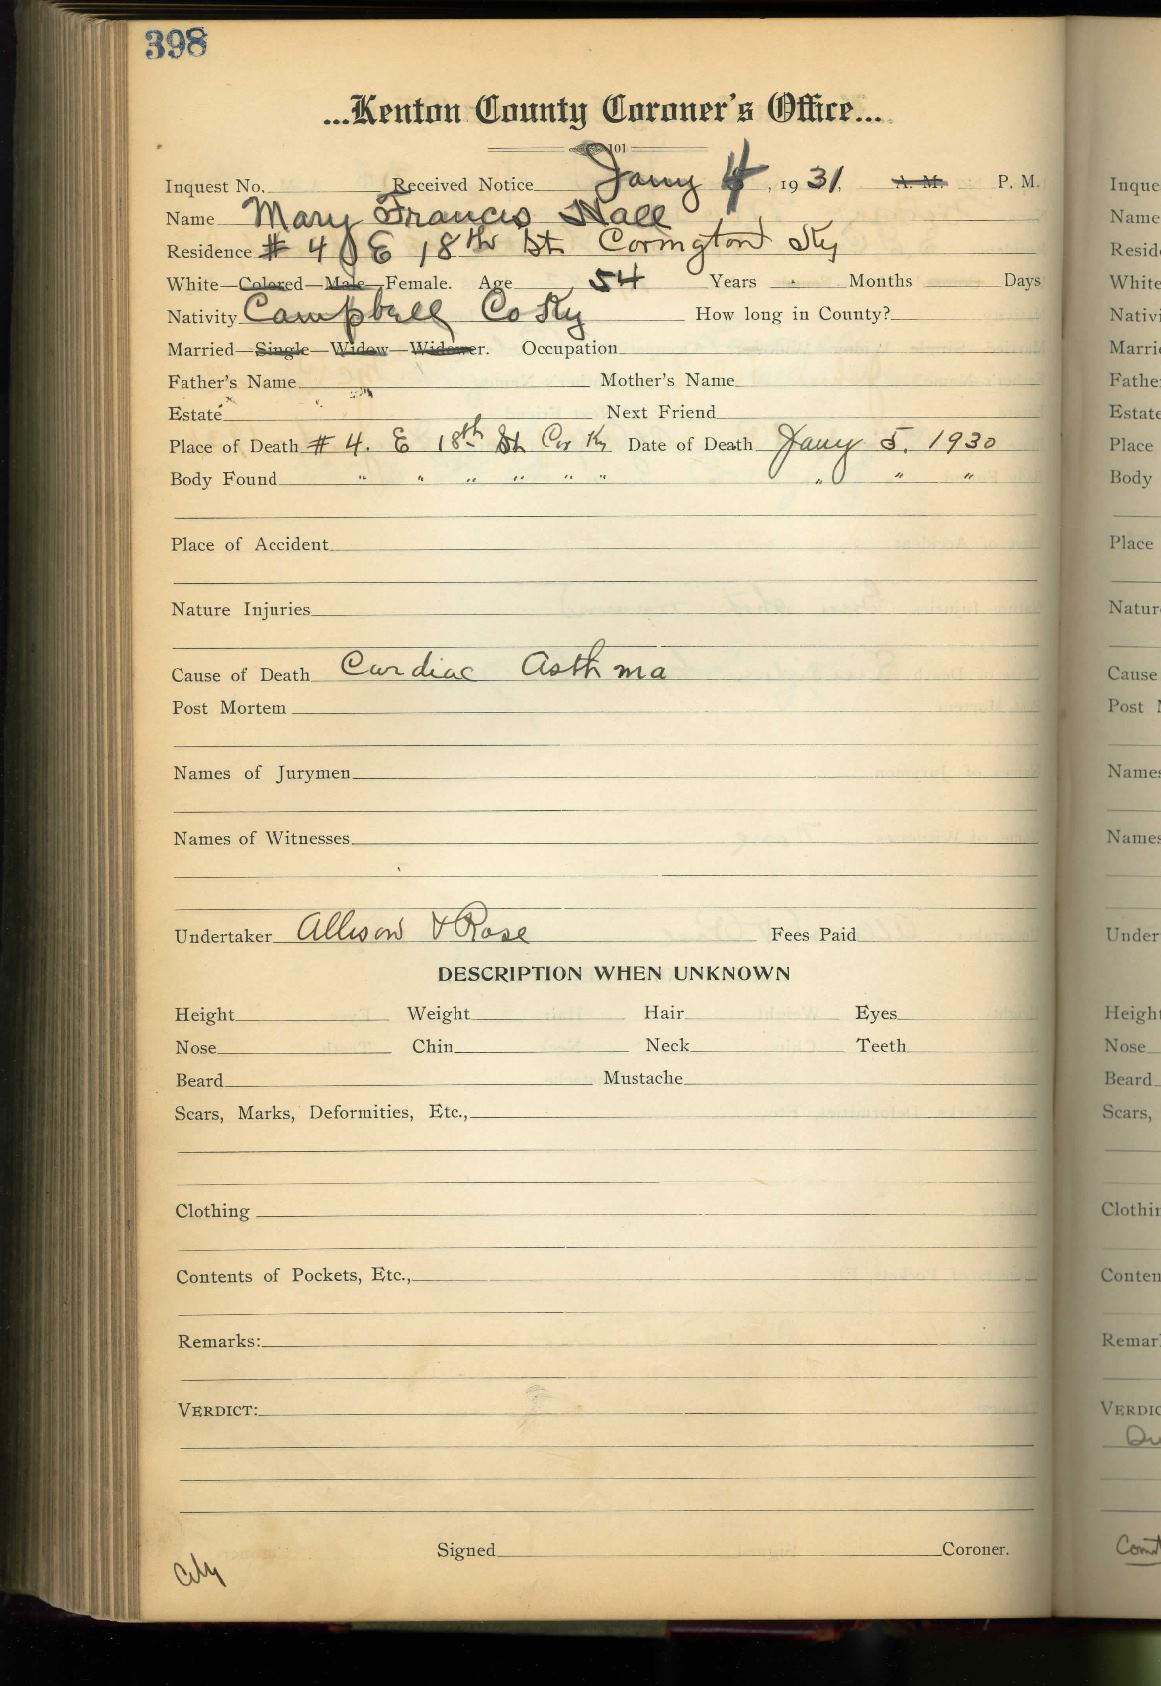 398
...Kenton County Coroner's Office...
101
Inquest No. Received Notice Jany 4, 1931, A. M. P. M.
Name Mary Francis Hall
Residence # 4 E 18th St Covington Ky
White—Colored—Male—Female. Age 54 Years Months Days
Nativity Campbell Co Ky How long in County?
Married—Single—Widow—Widower. Occupation
Father's Name Mother's Name
Estate Next Friend
Place of Death # 4. E 18th St Cov Ky Date of Death Jany 5. 1930
Body Found " " " " " " " " "
Place of Accident
Nature Injuries
Cause of Death Cardiac Asthma
Post Mortem
Names of Jurymen
Names of Witnesses
Undertaker Allison & Rose Fees Paid
DESCRIPTION WHEN UNKNOWN
Height Weight Hair Eyes
Nose Chin Neck Teeth
Beard Mustache
Scars, Marks, Deformities, Etc.,
Clothing
Contents of Pockets, Etc.,
Remarks:
VERDICT:
Signed Coroner.
City
Inque
Name
Resid
White
Nativi
Marri
Father
Estate
Place
Body
Place
Natur
Cause
Post M
Names
Names
Under
Height
Nose
Beard
Scars,
Clothin
Conten
Remar
VERDIC